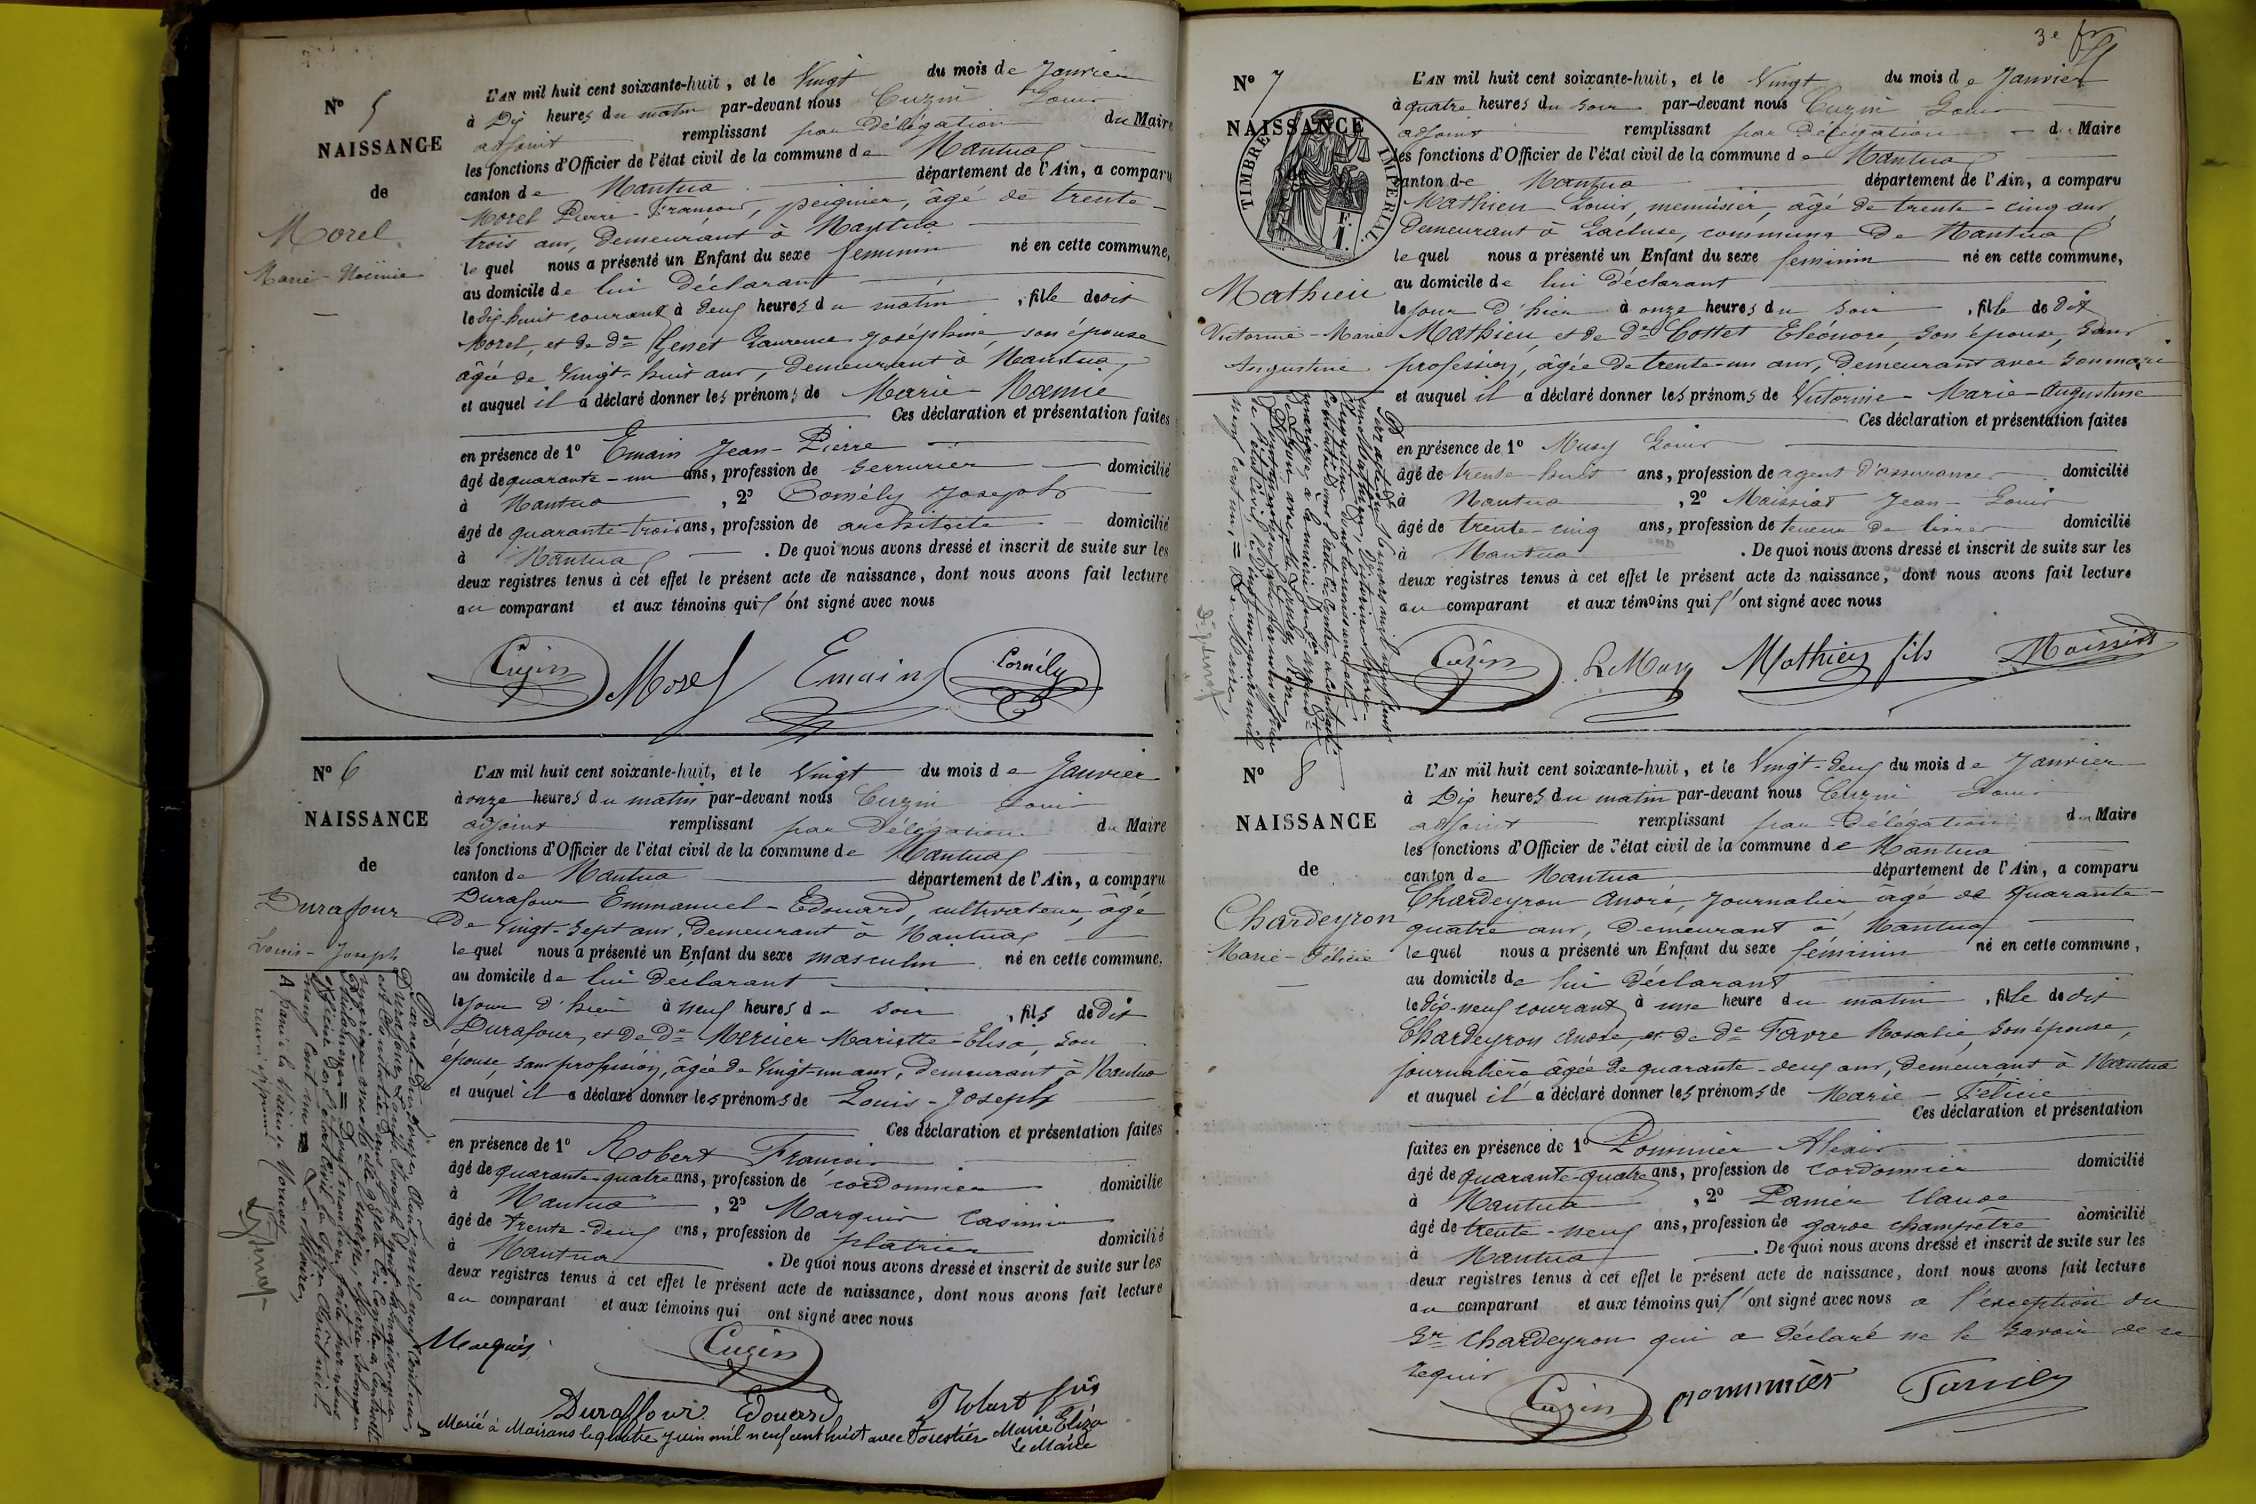 Nº 5
NAISSANCE
de
Morel
Marie-Noëmie
L'AN mil huit cent soixante-huit, et le Vingt du mois de Janvier
à Dix heures du matin par-devant nous Cuzin Louis
adjoint remplissant par Délégation du Maire
les fonctions d'Officier de l'état civil de la commune de Nantua
canton de Nantua département de l'Ain, a comparu
Morel Pierre-François, peignier, âgé de trente-
trois ans, Demeurant à Nantua
lequel nous a présenté un Enfant du sexe féminin né en cette commune,
au domicile de lui Déclarant
le dix-huit courant à deux heures du matin, fille de dit
Morel, et de De Genet Laurence Joséphine, son épouse
âgée de Vingt-huit ans, Demeurant à Nantua
et auquel il a déclaré donner les prénoms de Marie-Noémie
Ces déclaration et présentation faites
en présence de 1º Emain Jean-Pierre
âgé de quarante-un ans, profession de Serrurier domicilié
à Nantua, 2º Cornély Joseph
âgé de quarante-trois ans, profession de architecte domicilié
à Nantua. De quoi nous avons dressé et inscrit de suite sur les
deux registres tenus à cet effet le présent acte de naissance, dont nous avons fait lecture
au comparant et aux témoins qui ont signé avec nous
Cuzin Morel Emain Cornély
Nº 6
NAISSANCE
de
Durafour
Louis-Joseph
L'AN mil huit cent soixante-huit, et le Vingt du mois de Janvier
à onze heures du matin par-devant nous Cuzin Louis
adjoint remplissant par Délégation du Maire
les fonctions d'Officier de l'état civil de la commune de Nantua
canton de Nantua département de l'Ain, a comparu
Durafour Emmanuel-Edouard, cultivateur, âgé
De Vingt-Sept ans, Demeurant à Nantua
lequel nous a présenté un Enfant du sexe masculin né en cette commune,
au domicile de lui Déclarant
le jour d'hier à neuf heures du soir, fils de Dit
Durafour, et De De Mercier Mariette-Elisa, son
épouse, sans profession, âgée de Vingt-un ans, Demeurant à Nantua
et auquel il a déclaré donner les prénoms de Louis-Joseph
Ces déclaration et présentation faites
en présence de 1º Robert François
âgé de quarante-quatre ans, profession de cordonnier domicilié
à Nantua, 2º Marquis Casimir
âgé de trente-deux ans, profession de platrier domicilié
à Nantua. De quoi nous avons dressé et inscrit de suite sur les
deux registres tenus à cet effet le présent acte de naissance, dont nous avons fait lecture
au comparant et aux témoins qui ont signé avec nous
Marquis Cuzin
Duraffour Edouard Robert fçois
Marié à Moirans le quatre Juin mil neuf cent huit avec Forestier Marie Eliza
Le Maire
3e
Nº 7
NAISSANCE
de
TIMBRE IMPÉRIAL
Mathieu
Victorine-Marie
Augustine
L'AN mil huit cent soixante-huit, et le Vingt du mois de Janvier
à quatre heures du soir par-devant nous Cuzin Louis
adjoint remplissant par Délégation du Maire
les fonctions d'Officier de l'état civil de la commune de Nantua
canton de Nantua département de l'Ain, a comparu
Mathieu Louis, menuisier, âgé de trente-cinq ans,
Demeurant à Lacluse, commune De Nantua
lequel nous a présenté un Enfant du sexe féminin né en cette commune,
au domicile de lui déclarant
le jour d'hier à onze heures du soir, fille de Dit
Mathieu, et de De Cottet Eléonore, son épouse, sans
profession, âgée De trente-un ans, Demeurant avec son mari
et auquel il a déclaré donner les prénoms de Victorine-Marie-Augustine
Ces déclaration et présentation faites
en présence de 1º Musy Louis
âgé de trente-huit ans, profession de agent d'assurances domicilié
à Nantua, 2º Maissiat Jean-Louis
âgé de trente-cinq ans, profession de teneur de livres domicilié
à Nantua. De quoi nous avons dressé et inscrit de suite sur les
deux registres tenus à cet effet le présent acte de naissance, dont nous avons fait lecture
au comparant et aux témoins qui ont signé avec nous
Cuzin L Musy Mathieu fils Maissiat
Nº 8
NAISSANCE
de
Chardeyron
Marie-Félicie
L'AN mil huit cent soixante-huit, et le Vingt-deux du mois de Janvier
à Dix heures du matin par-devant nous Cuzin Louis
adjoint remplissant par Délégation du Maire
les fonctions d'Officier de l'état civil de la commune de Nantua
canton de Nantua département de l'Ain, a comparu
Chardeyron André, journalier, âgé de quarante-
quatre ans, Demeurant à Nantua
lequel nous a présenté un Enfant du sexe féminin né en cette commune,
au domicile de lui déclarant
le dix-neuf courant à une heure du matin, fille de dit
Chardeyron André, et de De Favre Rosalie, son épouse,
journalière âgée de quarante-deux ans, demeurant à Nantua
et auquel il a déclaré donner les prénoms de Marie-Félicie
Ces déclaration et présentation
faites en présence de 1º Pommier Alexis
âgé de quarante-quatre ans, profession de cordonnier domicilié
à Nantua, 2º Claude
âgé de trente-neuf ans, profession de garde champêtre domicilié
à Nantua. De quoi nous avons dressé et inscrit de suite sur les
deux registres tenus à cet effet le présent acte de naissance, dont nous avons fait lecture
au comparant et aux témoins qui ont signé avec nous a l'exception du
Sr Chardeyron qui a déclaré ne le savoir de ce
requis
Cuzin pommier